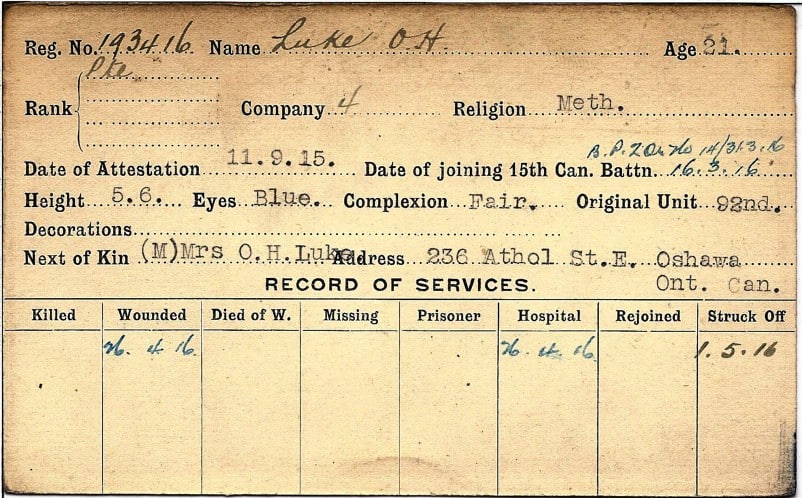 Reg. No. 193416 Name Luke O H. Age 21.
Pte
Rank Company 4 Religion Meth.
B. P. 2 14/31.3.16
Date of Attestation 11.9.15. Date of joining 15th Can. Battn. 16.3.16
Height 5.6. Eyes Blue. Complexion Fair. Original Unit 92nd.
Decorations
Next of Kin (M)Mrs O.H.Luke. Address 236 Athol St.E. Oshawa
RECORD OF SERVICES. Ont. Can.
Killed Wounded Died of W. Missing Prisoner Hospital Rejoined Struck Off
26.4.16 26.4.16 1.5.16